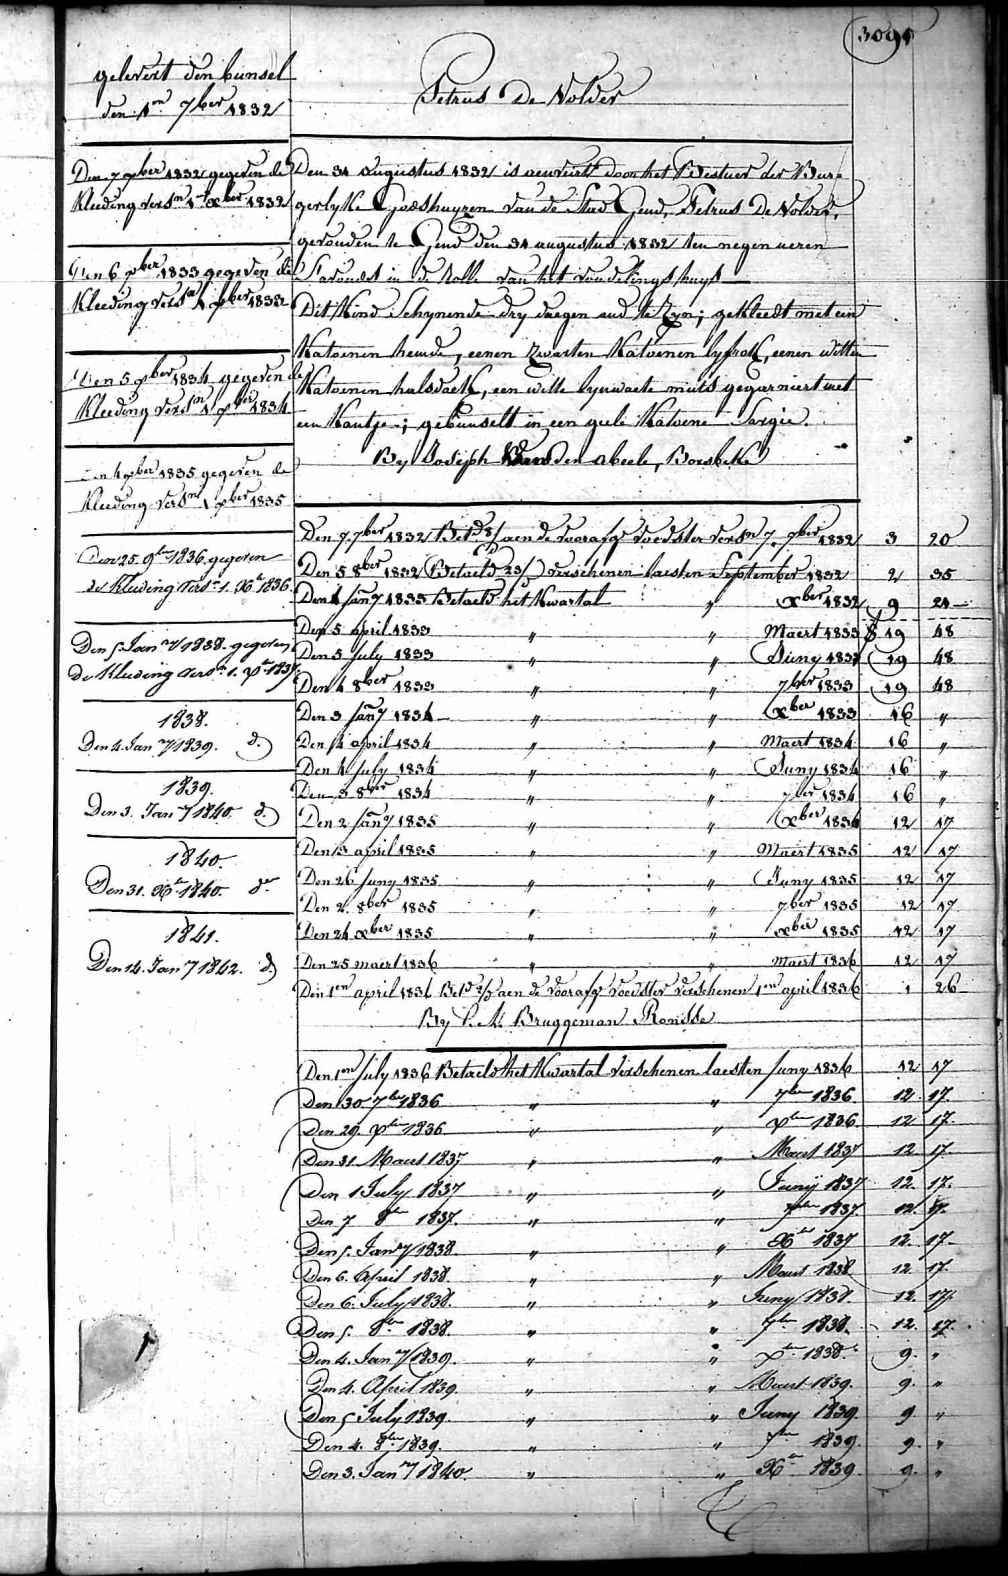 3095
gelevert den bunsel
den 1en 7ber 1832
Den 7 xber 1832 gegeven de
Kleeding versn 1 xber 1832
Den 6 xber 1833 gegeven de
Kleeding versn 1 xber 1833
Den 5 xber 1834 gegeven de
Kleeding versn 1 xber 1834
Den 4 xber 1835 gegeven de
Kleeding versn 1 xber 1835
Den 25. 9ber 1836 gegeven
de Kleeding versn 1. Xber 1836
Den 5 Jany 1838. gegeven
de Kleeding versn 1. xber 1837.
1838.
Den 4. Jany 1839. d.
1839.
Den 3. Jany 1840. d.
1840.
Den 31. Xber 1840. do
1841.
Den 14. Jany 1842. d.
Petrus De Volder
Den 31 augustus 1832 is aenveird door het Bestuer der Bur-
gerlyke Godshuyzen van de Stad Gend, Petrus De Volder,
gevonden te Gend den 31 augustus 1832 ten negen ueren
s'avonds in de Rolle van het vondelings huys
Dit Kind schynende dry daegen oud te zyn; gekleedt met een
Katoenen hemde, eenen zwarten Katoenen lyfrok, eenen witten
Katoenen halsdoek, een witte lynwaete muts gegarniert met
een Kantje; gebunselt in een geele Katoene Sargie.
By Joseph Van den abeele, Borsbeke
Den 7 7ber 1832 Betd aen de voorafge voedster versn 7 7ber 1832 3 20
Den 5 8ber 1832 Betaeld 23/ verschenen laesten September 1832 2 35
Den 4 Jany 1833 Betaeld het Kwartal " xber 1832 9 24
Den 5 april 1833 " " Maert 1833 19 48
Den 5 July 1833 " " Juny 1833 19 48
Den 4 8ber 1833 " " 7ber 1833 19 48
Den 3 Jany 1834 " " xber 1833 16 "
Den 4 april 1834 " " Maert 1834 16 "
Den 4 July 1834 " " Juny 1834 16 "
Den 3 8ber 1834 " " 7ber 1834 16 "
Den 2 Jany 1835 " " xber 1834 12 17
Den 3 april 1835 " " Maert 1835 12 17
Den 26 Juny 1835 " " Juny 1835 12 17
Den 2 8ber 1835 " " 7ber 1835 12 17
Den 24 xber 1835 " " xber 1835 12 17
Den 25 maert 1836 " " Maert 1836 12 17
Den 1en april 1836 Betd aen de voorafge voedster verschenen 1en april 1836 1 26
By C. M. Bruggeman Ronsse
Den 1en July 1836 Betaeld het Kwartal verschenen laesten Juny 1836 12 17
Den 30 7ber 1836 " " 7ber 1836 12 17.
Den 29. xber 1836 " " xber 1836 12 17.
Den 31. Maert 1837 " " Maert 1837 12 17.
Den 1 July 1837 " " Junij 1837 12. 17.
Den 7 8ber 1837. " " 7ber 1837. 12. 17.
Den 5. Jany 1838 " " Xber 1837 12. 17.
Den 6. April 1838. " " Maert 1838 12. 17.
Den 6. July 1838. " " Juny 1838. 12. 17.
Den 5. 8ber 1838. " " 7ber 1838. 12. 17.
Den 4. Jany 1839. " " xber 1838. 9. "
Den 4. April 1839. " " Maert 1839. 9. "
Den 5 July 1839. " " Juny 1839. 9. "
Den 4. 8ber 1839. " " 7ber 1839. 9. "
Den 3. Jany 1840. " " Xber 1839. 9. "